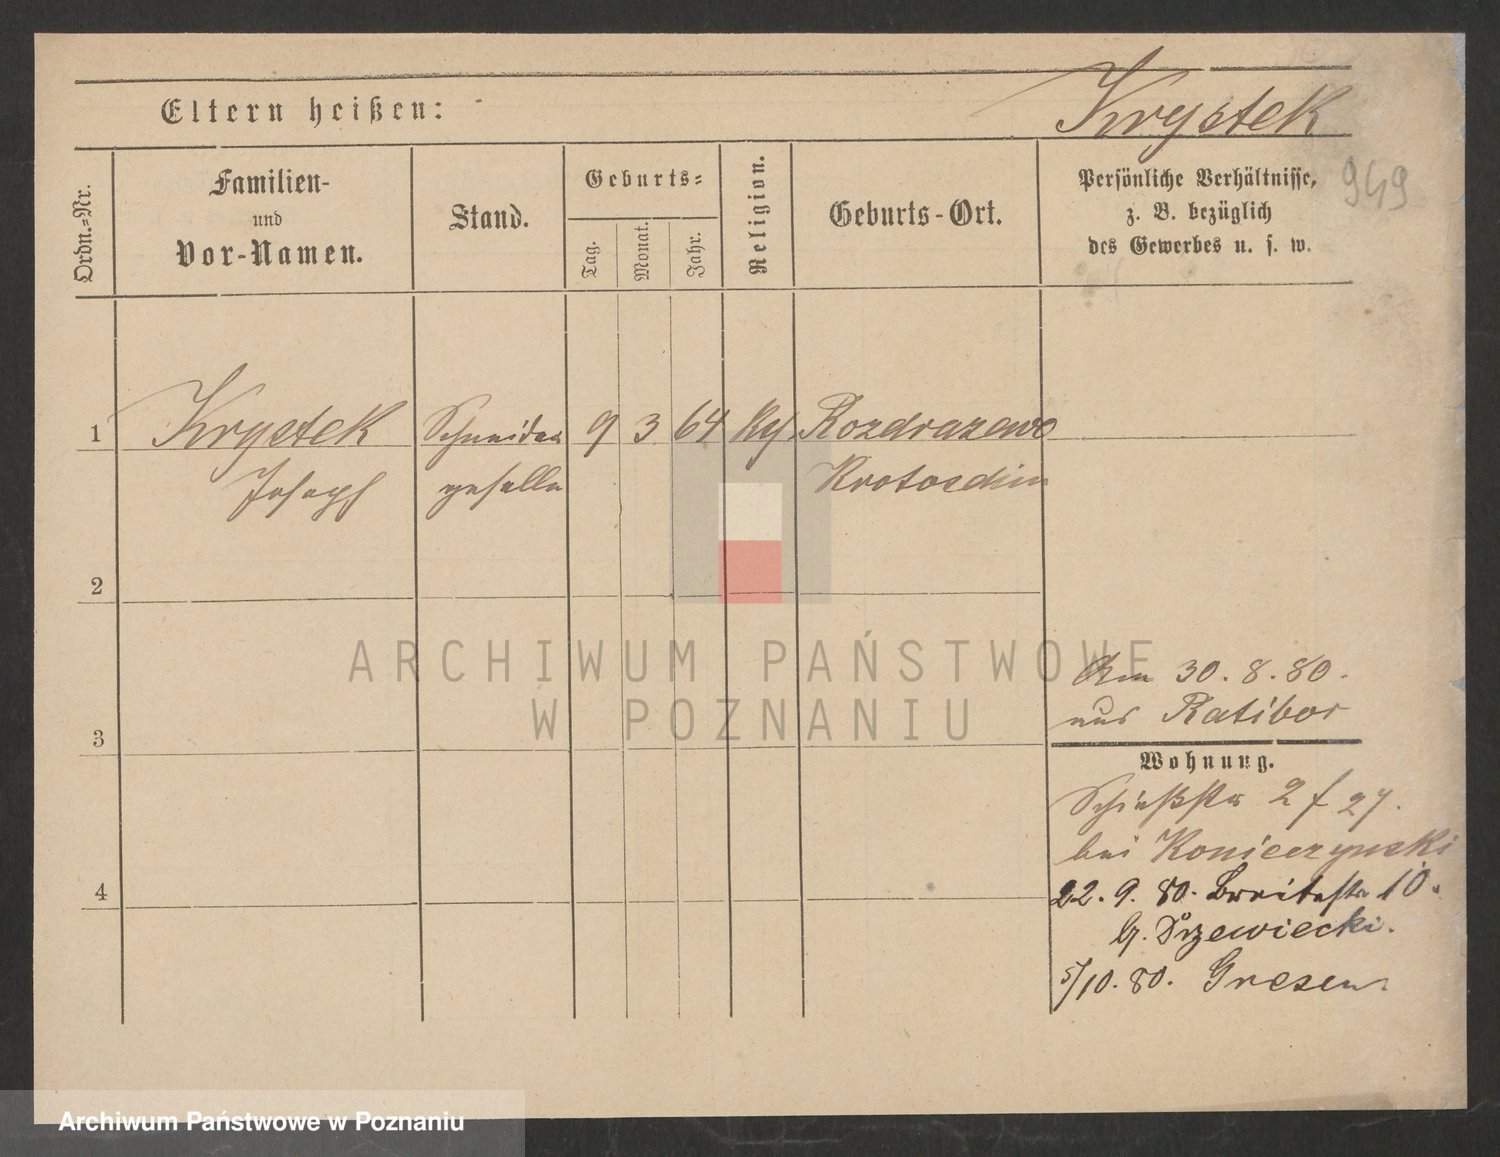 Krystek
Eltern heißen:
949
Ordn.=Nr.
Familien-
und
Vor-Namen.
Stand.
Geburts=
Tag.
Monat.
Jahr.
Religion.
Geburts-Ort.
Persönliche Verhältnisse,
z. B. bezüglich
des Gewerbes u. s. w.
1 Krystek Schneider 9 3 64 Rozdrazewo
Joseph geselle Krotoschin
2
ARCHIWUM PAŃSTWOWE
W POZNANIU
Am 30.8.80.
aus Ratibor
3
Wohnung.
Schießstr 2 f 27.
bei Konieczynski
4
22.9.80. Breitestr 10.
5/10.80. Gnesen
Archiwum Państwowe w Poznaniu